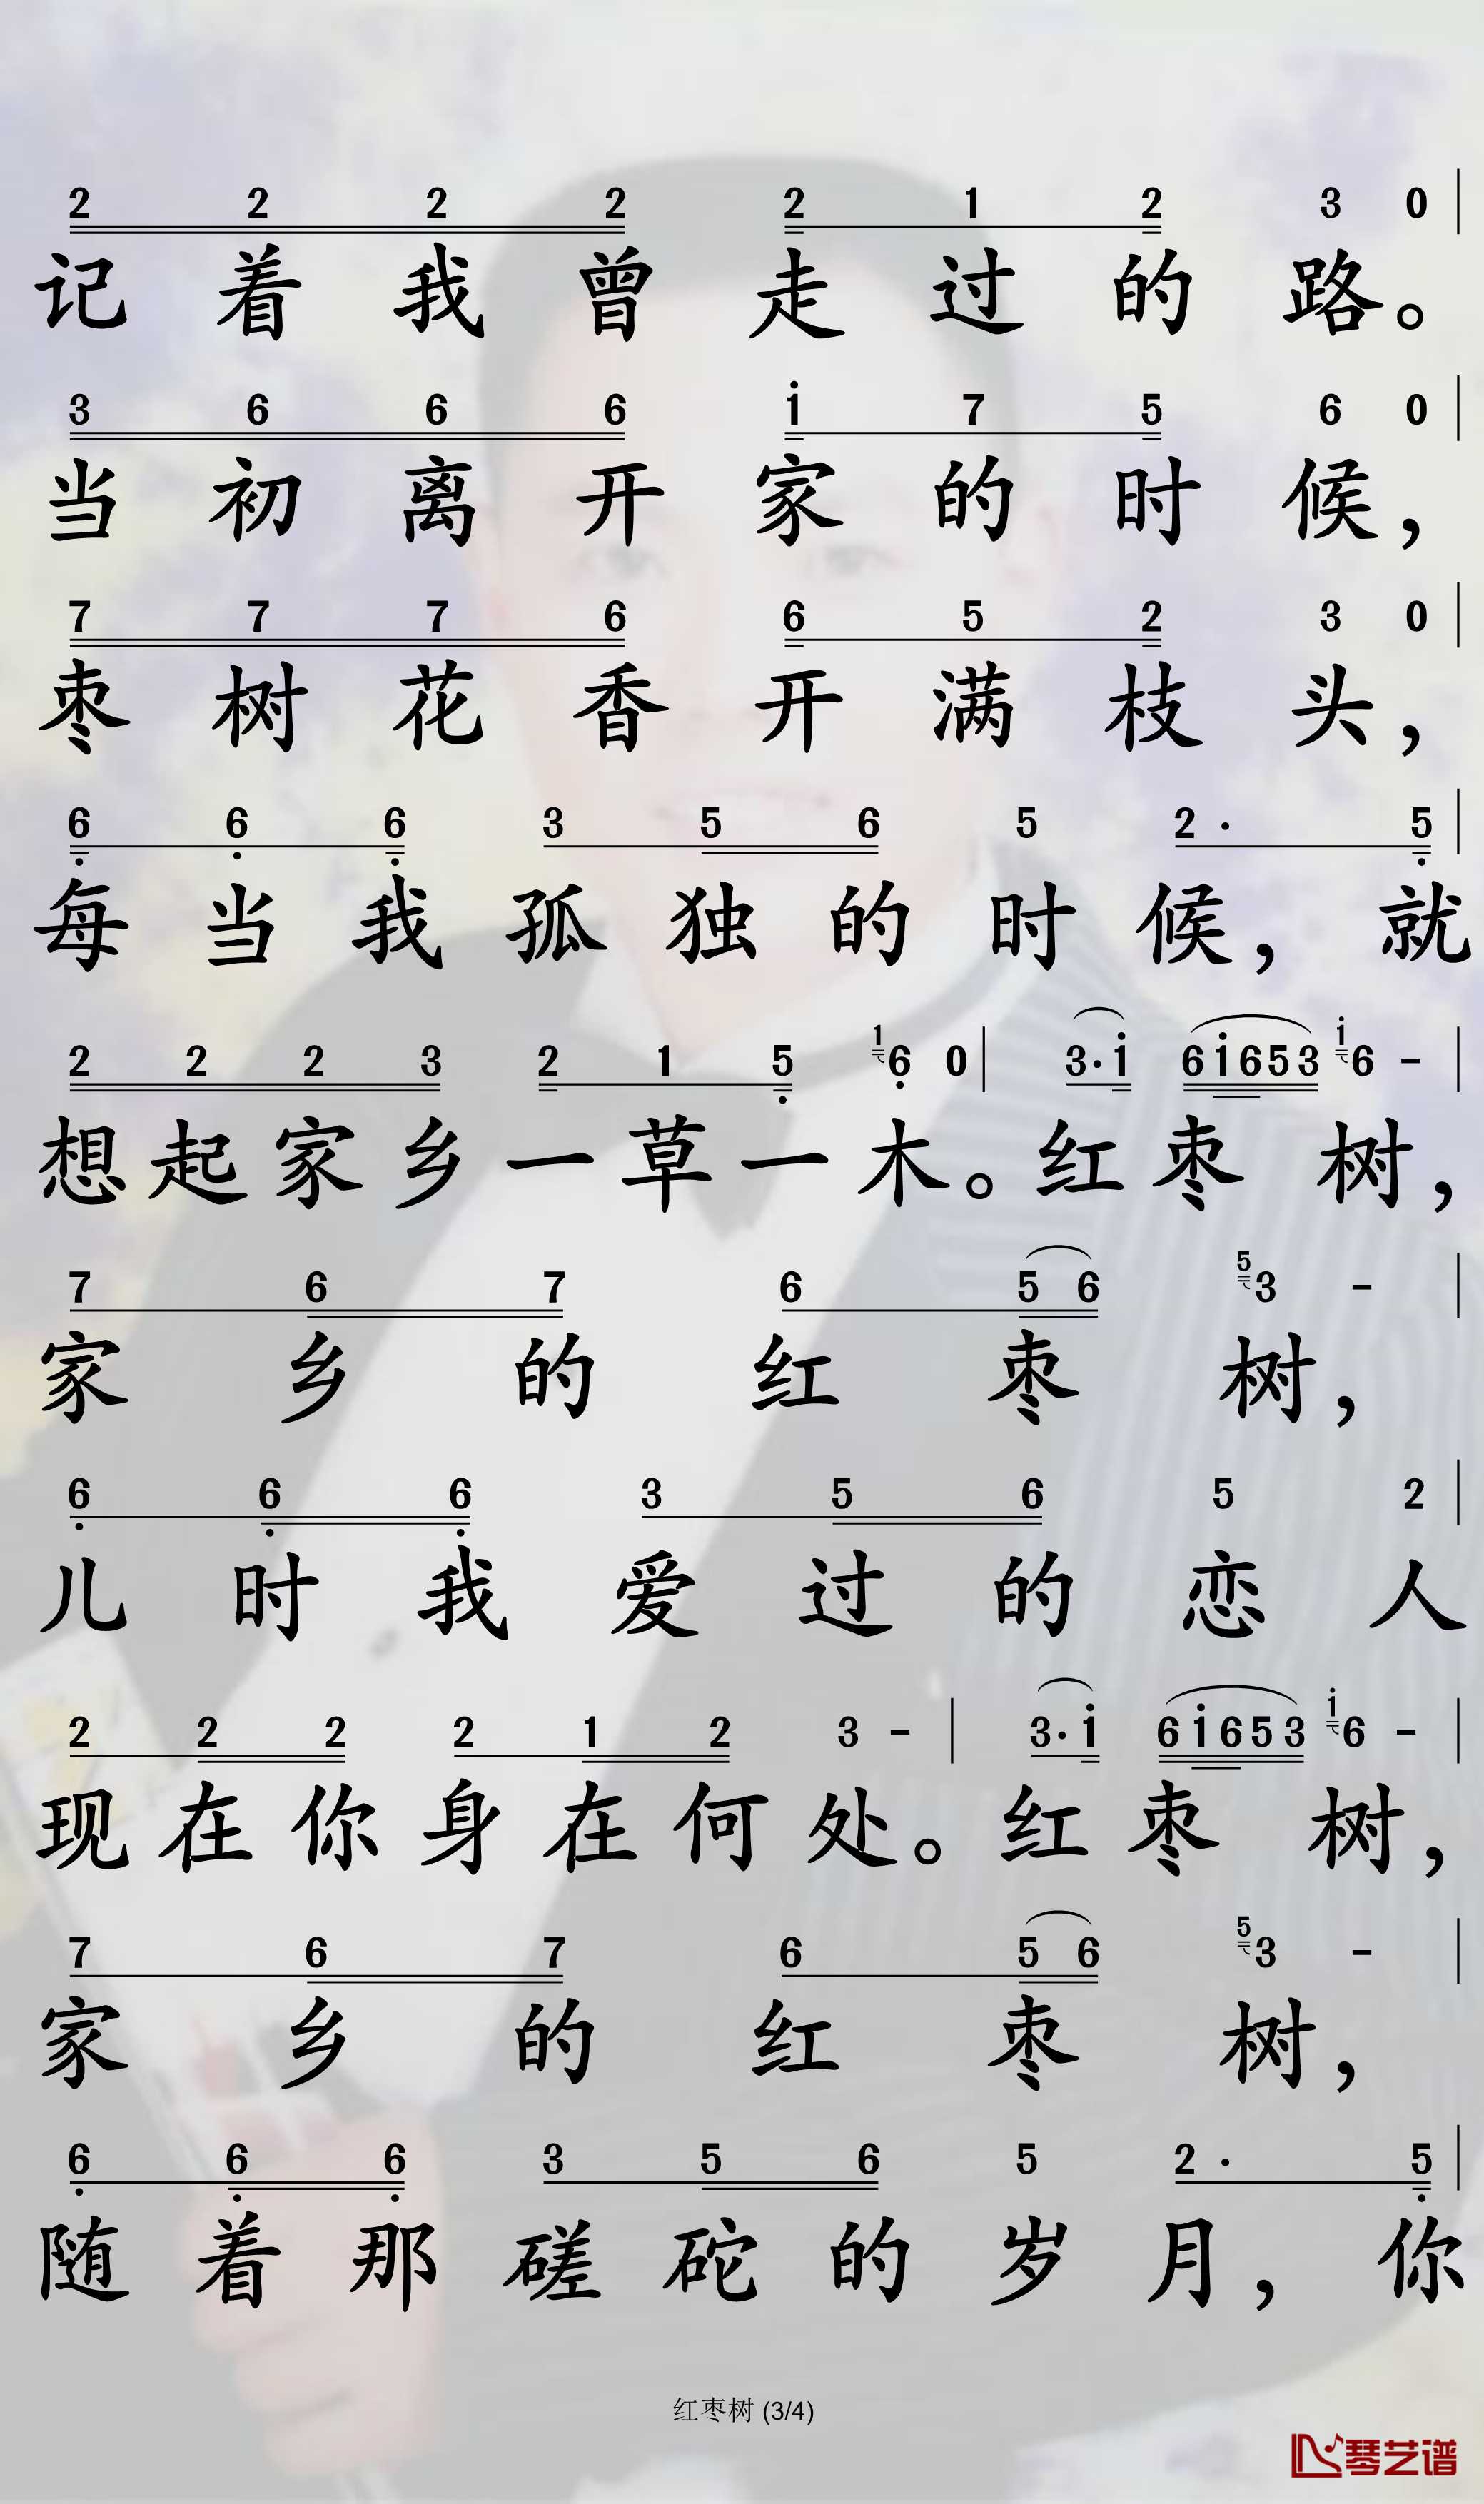 2 2 2 2 2 1 2 3 0
记着我曾走过的路。
3 6 6 6 i 7 5 6 0
当初离开家的时候，
7 7 7 6 6 5 2 3 0
枣树花香开满枝头，
6 6 6 3 5 6 5 2 · 5
每当我孤独的时候，就
2 2 2 3 2 1 5 1 6 0 3 · i 6 i 6 5 3 i 6 -
想起家乡一草一木。红枣树，
7 6 7 6 5 6 5 3 -
家乡的红枣树，
6 6 6 3 5 6 5 2
儿时我爱过的恋人
2 2 2 2 1 2 3 - 3 · i 6 i 6 5 3 i 6 -
现在你身在何处。红枣树，
7 6 7 6 5 6 5 3 -
家乡的红枣树，
6 6 6 3 5 6 5 2 · 5
随着那磋砣的岁月，你
红枣树 (3/4)
琴艺谱